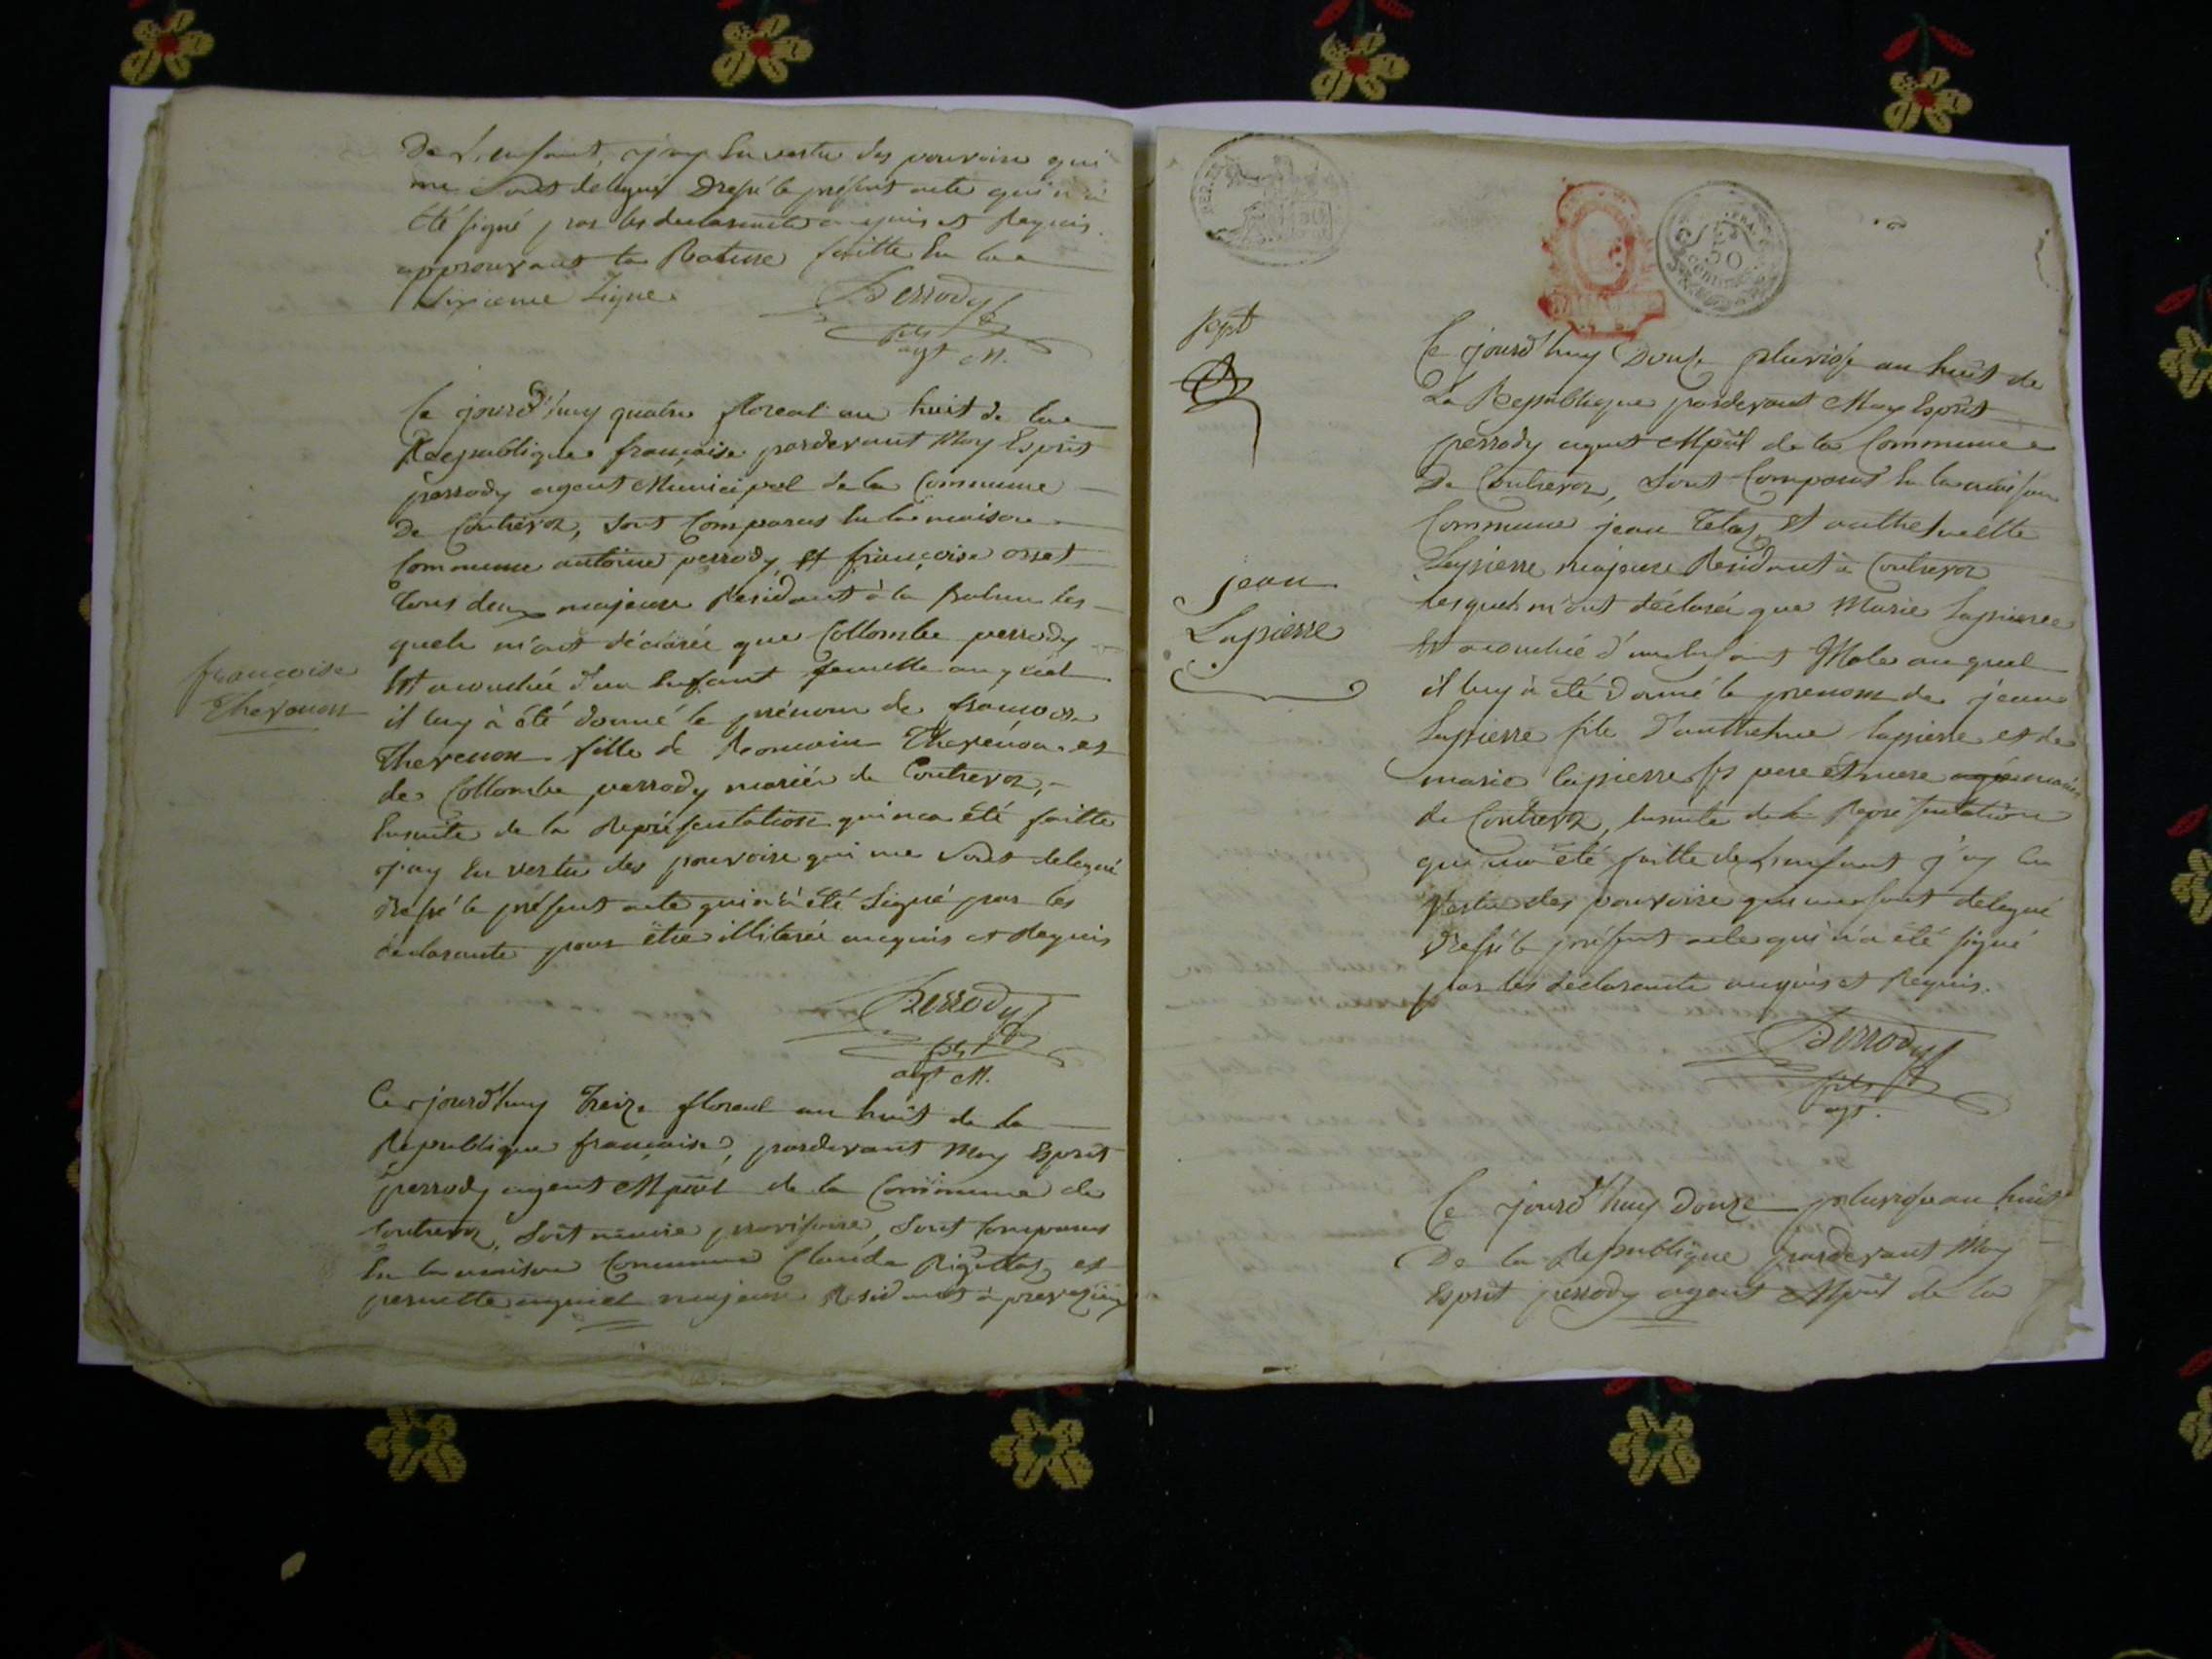 De L'enfant, j'ay En vertu des pouvoirs qui
me sont delegués Dressé le present acte qui n'a
été signé par les declarants enquis et Requis.
approuvant la Rature faitte En la
sixieme Ligne.
Perrody
fils
agt M.
Ce jourd'huy quatre floreal an huit de la
Republique française pardevant Moy Esprit
perrody agent Municipal de la Commune
De Contrevoz, sont Comparus En la maison
Commune antoine perrody et françoise orset
tous deux majeurs Residant à la Balme les
quels m'ont déclarés que Collombe perrody
Est acouchée d'un Enfant femelle auquel
il luy à été donné le prénom de françoise
Thevenon fille de Romain Thevenon et
de Collombe perrody mariés de Contrevoz,
Ensuite de la Représentation qui m'a été faitte
j'ay En vertu des pouvoirs qui me sont delegué
dressé le présent acte qui n'à été Signé par les
déclarants pour être illiterés enquis et Requis
françoise
Thevenon
Perrody
fils
agt M.
Ce jourd'huy Treize floreal an huit de la
Republique française, pardevant Moy Esprit
perrody agent Mpal de la Commune de
Contrevoz, Soit mairie provisoire, sont Comparus
En la maison Commune Claude Rigottaz et
pernette majeurs Residants à
50
jean
Lapierre
Ce jourd'huy Douze pluviose an huit de
La Republique pardevant Moy Esprit
perrody agent Mpal de la Commune
De Contrevoz, sont Comparus En la maison
Commune jean et anthelmette
Lapierre majeurs Residant à Contrevoz
lesquels m'ont déclarés que Marie Lapierre
Est acouchée d'un Enfant Male auquel
il luy à été Donné le prenom de jean
Lapierre fils d'anthelme lapierre et de
marie lapierre ses pere et mere mariés
de Contrevoz, Ensuite de la Representation
qui m'a été faitte de L'enfant j'ay En
Vertu des pouvoirs qui me sont delegué
dressé le présent acte qui n'a été signé
par les declarants enquis et Requis.
Perrody
fils
agt.
Ce jourd'huy Douze pluviose an huit
De la Republique pardevant Moy
Esprit perrody agent Mpal de la